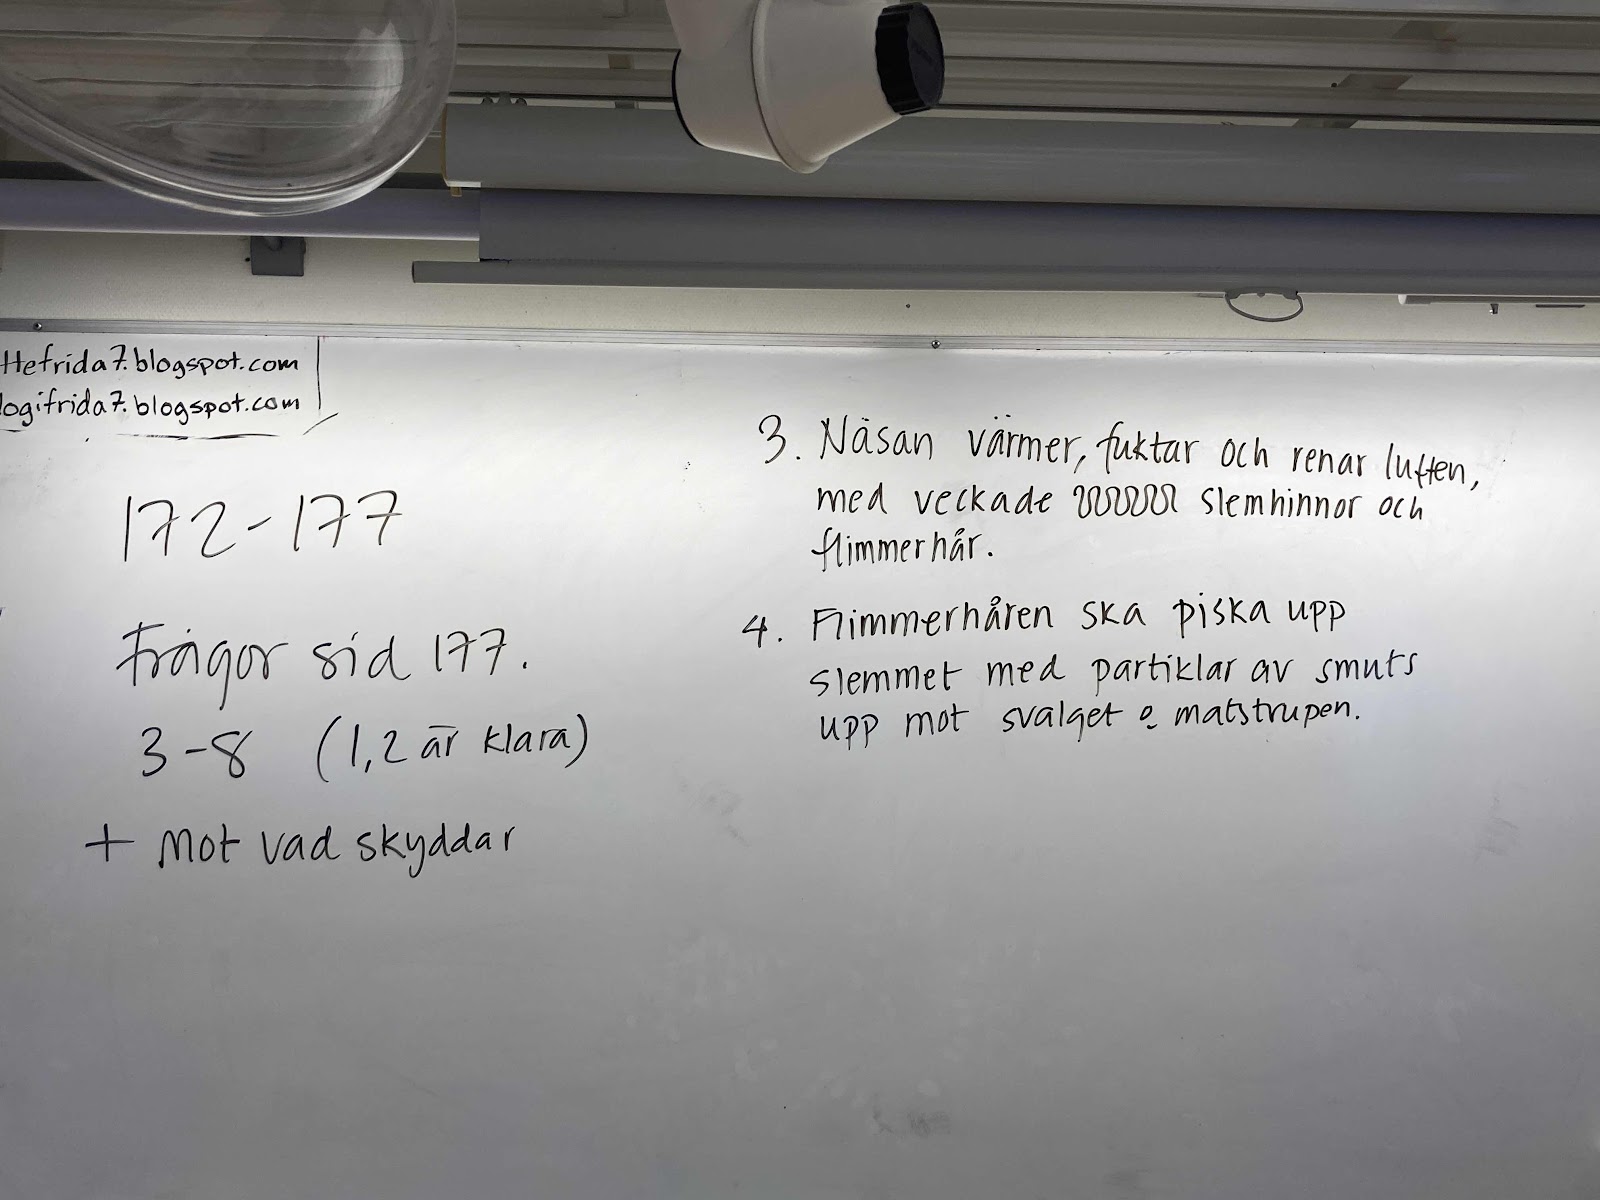 Hefrida7.blogspot.com
logifrida7.blogspot.com
172-177
Frågor sid 177.
3-8 (1,2 är klara)
+ Mot vad skyddar
3. Näsan värmer, fuktar och renar luften,
med veckade slemhinnor och
flimmerhår.
4. Flimmerhåren ska piska upp
slemmet med partiklar av smuts
upp mot svalget o matstrupen.